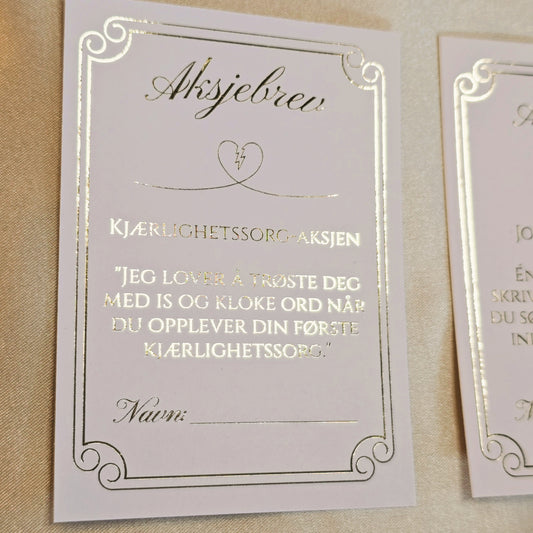 Aksjebrev
Kjærlighetssorg-aksjen
"Jeg lover å trøste deg
med is og kloke ord når
du opplever din første
kjærlighetssorg."
Navn:
Jo
Én
skriv
du sø
in